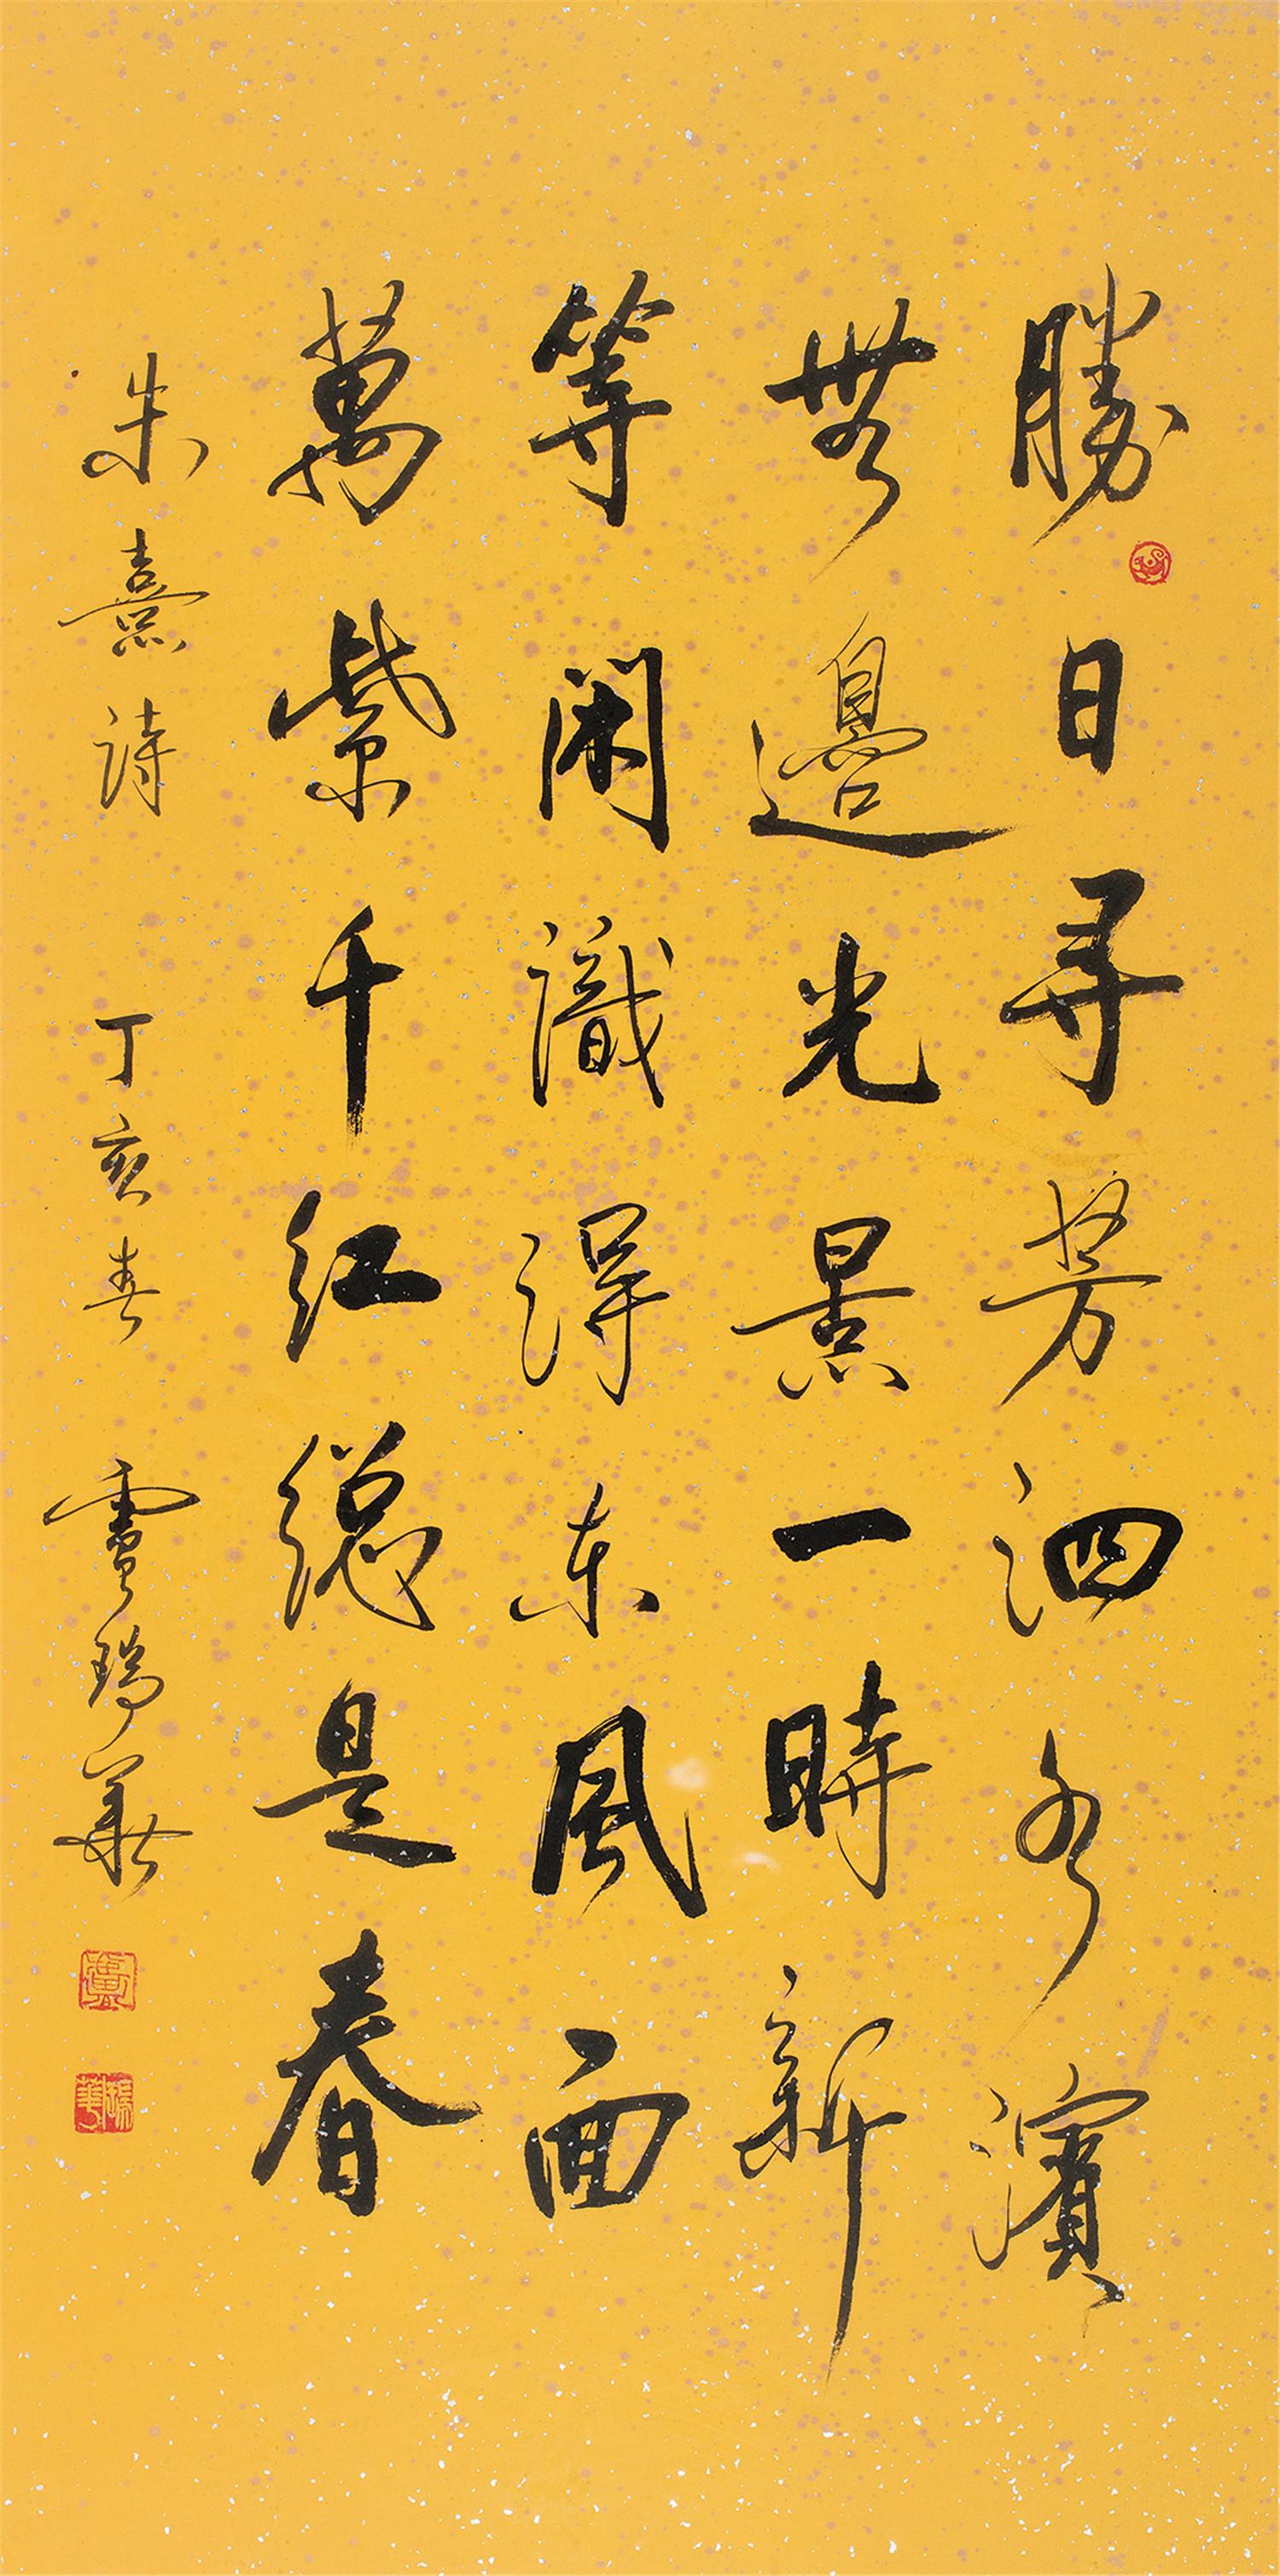 勝日尋芳泗水濱
無邊光景一時新
等閑識得東風面
萬紫千紅總是春
朱熹詩 丁亥春 瑞華
瑞華